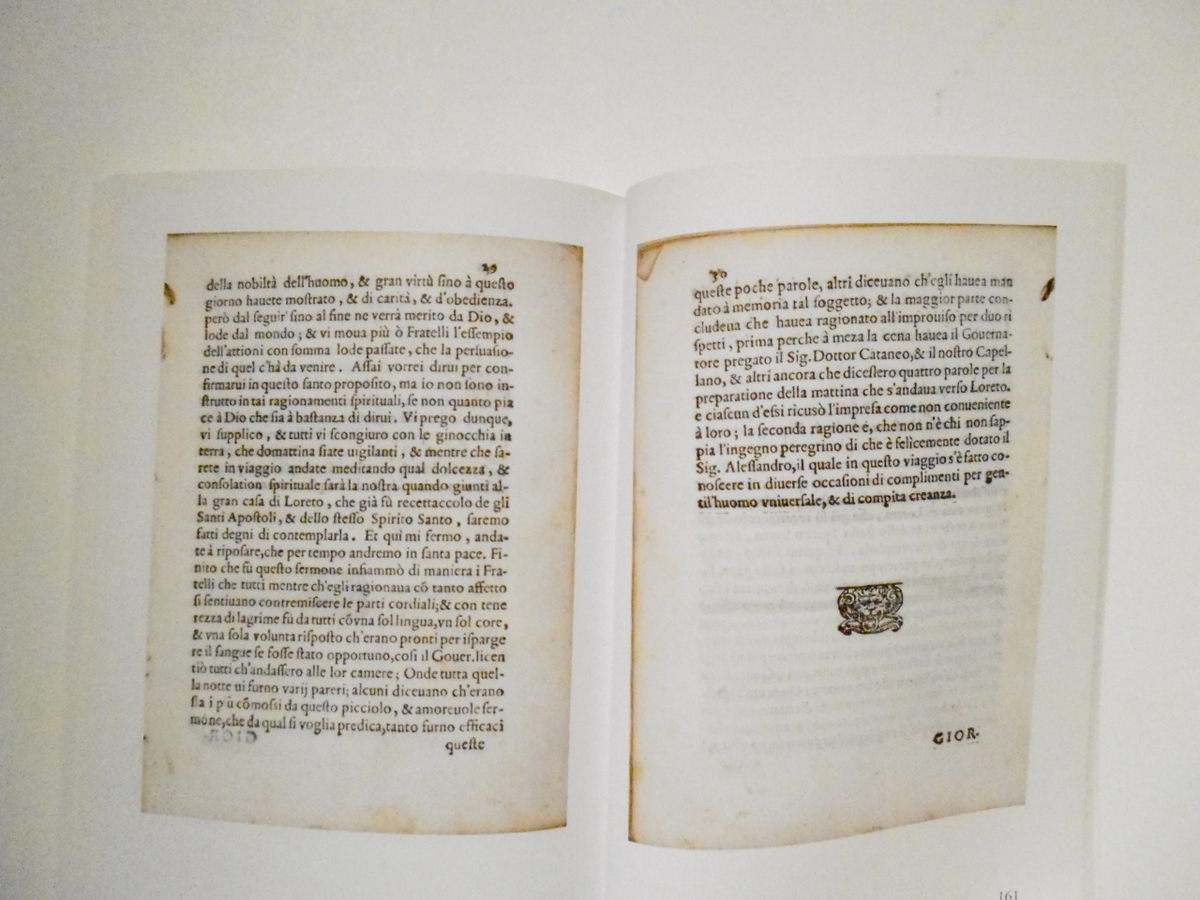 29
della nobiltà dell'huomo, & gran virtù sino à questo
giorno hauete mostrato, & di carità, & d'obedienza.
però dal seguir sino al fine ne verrà merito da Dio, &
lode dal mondo; & vi moua più ò Fratelli l'essempio
dell'attioni con somma lode passate, che la persuasio-
ne di quel c'hà da venire. Assai vorrei dirui per con-
firmarui in questo santo proposito, ma io non sono in-
strutto in tai ragionamenti spirituali, se non quanto pia
ce à Dio che sia à bastanza di dirui. Vi prego dunque,
vi supplico, & tutti vi scongiuro con le ginocchia in
terra, che domattina siate uigilanti, & mentre che sa-
rete in viaggio andate meditando qual dolcezza, &
consolation spirituale sarà la nostra quando giunti al-
la gran casa di Loreto, che già fù recettaccolo de gli
Santi Apostoli, & dello stesso Spirito Santo, saremo
fatti degni di contemplarla. Et qui mi fermo, anda-
te à riposare, che per tempo andremo in santa pace. Fi-
nito che fù questo sermone infiammò di maniera i Fra-
telli che tutti mentre ch'egli ragionaua cõ tanto affetto
si sentiuano contremiscere le parti cordiali; & con tene
rezza di lagrime fù da tutti cõ vna sol lingua, vn sol core,
& vna sola volunta risposto ch'erano pronti per isparge
re il sangue se fosse stato opportuno, così il Gouer. licen
tiò tutti ch'andassero alle lor camere; Onde tutta quel-
la notte ui furno varij pareri; alcuni diceuano ch'erano
sta i p ù cõmossi da questo picciolo, & amoreuole ser-
mone, che da qual si voglia predica, tanto furno efficaci
queste
30
queste poche parole, altri diceuano ch'egli hauea man
dato à memoria tal soggetto; & la maggior parte con-
cludeua che hauea ragionato all'improuiso per duo ri
spetti, prima perche à meza la cena hauea il Gouerna-
tore pregato il Sig. Dottor Cataneo, & il nostro Capel-
lano, & altri ancora che dicestero quattro parole per la
preparatione della mattina che s'andaua verso Loreto.
e ciascun d'essi ricusò l'impresa come non conueniente
à loro; la seconda ragione è, che non n'è chi non sap-
pia l'ingegno peregrino di che è felicemente dotato il
Sig. Alessandro, il quale in questo viaggio s'è fatto co-
noscere in diuerse occasioni di complimenti per gen-
til'huomo vniuersale, & di compita creanza.
GIOR-
161